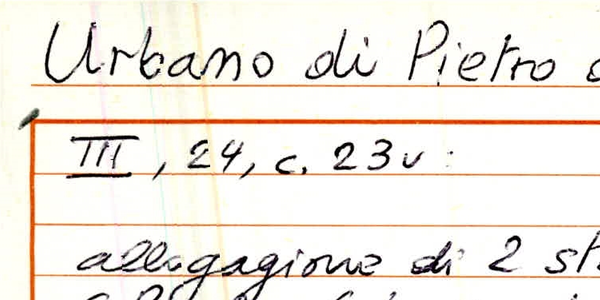 Urbano di Pietro
III, 24, c. 23v:
allogagione di 2